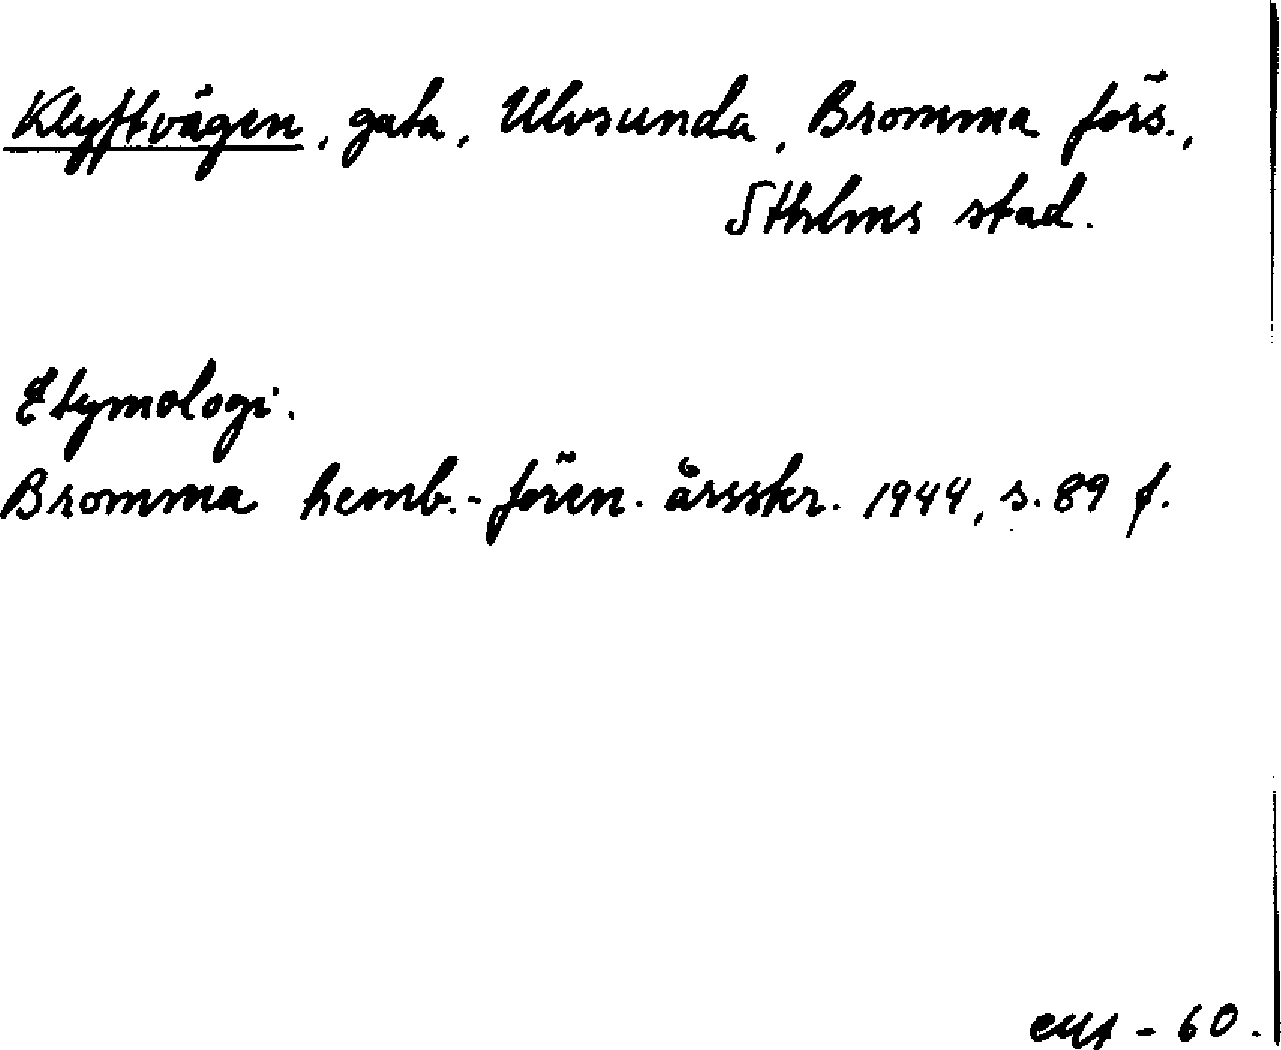 Klyftvägen, gata, Ulvsunda, Bromma förs.,
Sthlms stad.
Etymologi.
Bromma hemb.-fören. årsskr. 1944, s. 89 f.
- 60.